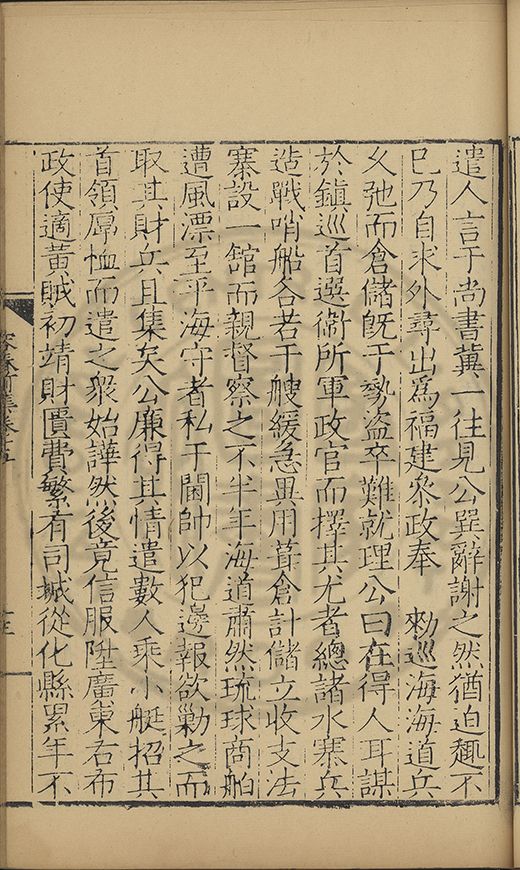 遣人言于尚書冀一往見公巽辭謝之然猶迫趣不
已乃自求外尋出爲福建叅政奉　勑巡海海道兵
久弛而倉儲旣于勢盗卒難就理公曰在得人耳謀
於鎮巡首選衞所軍政官而擇其尤者總諸水寨兵
造戰哨船各若干艘緩急異用葺倉計儲立收支法
寨設一舘而親督察之不半年海道肅然琉球商舶
遭風漂至平海守者私于閫帥以犯邊報欲勦之而
取其財兵且集矣公廉得其情遣數人乘小艇招其
首領厚恤而遣之衆始譁然後竟信服陞廣東右布
政使適黃賊初靖財匱費繁有司城從化縣累年不